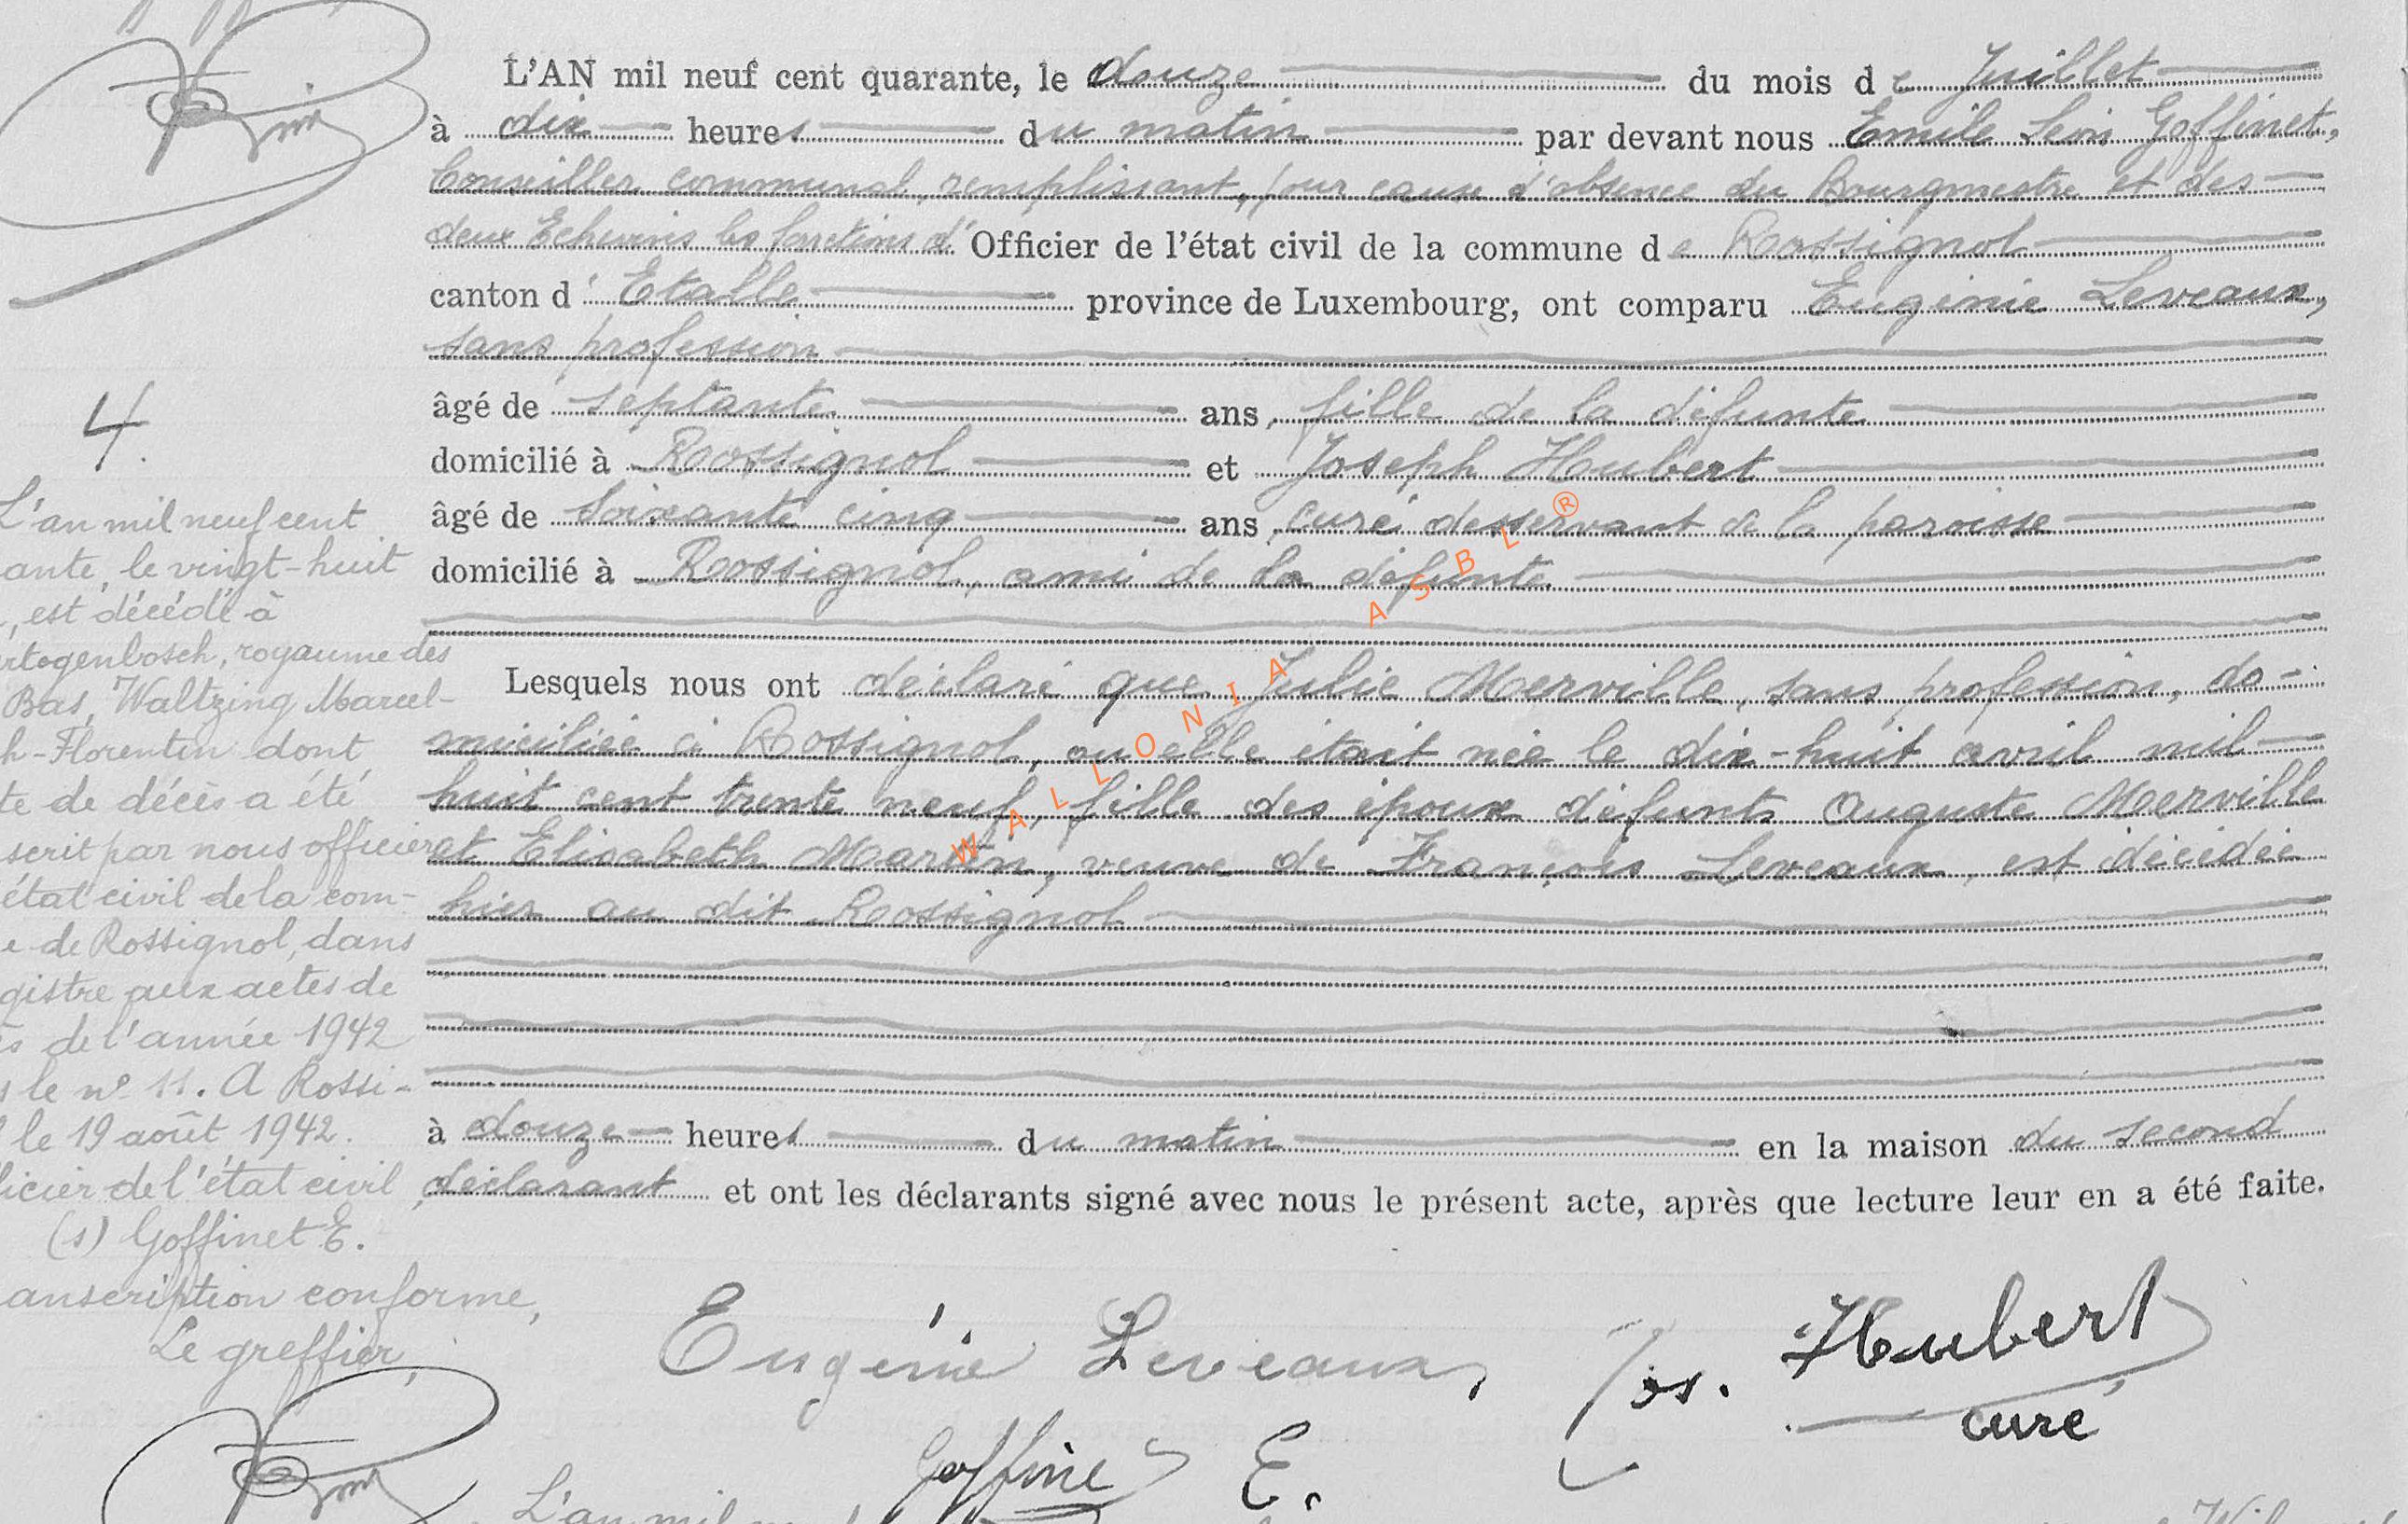 L'AN mil neuf cent quarante, le douze du mois de Juillet
à dix heures du matin par devant nous Emile Goffinet,
Conseiller communal, remplissant, pour cause d'absence du Bourgmestre et des
deux Echevins les fonctions d' Officier de l'état civil de la commune de Rossignol
canton d'Etalle province de Luxembourg, ont comparu Eugénie Leveaux,
sans profession
âgé de septante ans, fille de la défunte
domicilié à Rossignol et Joseph Hubert
âgé de soixante cinq ans, curé desservant de la paroisse
domicilié à Rossignol, ami de la défunte
Lesquels nous ont déclaré que Julie Merville, sans profession, do-
miciliée à Rossignol, où elle était née le dix-huit avril mil
huit cent trente neuf, fille des époux défunts Auguste Merville
et Elisabeth Martin, veuve de François Leveaux, est décédée
hier au dit Rossignol
à douze heures du matin en la maison du second
déclarant et ont les déclarants signé avec nous le présent acte, après que lecture leur en a été faite.
Eugénie Leveaux,
Jos. Hubert
curé
Goffinet E.
4.
L'an mil neuf cent
ante, le vingt-huit
, est décédé à
rtogenbosch, royaume des
Bas, Waltzing Marcel-
h-Florentin dont
te de décès a été
scrit par nous officier
état civil de la com-
e de Rossignol, dans
gistre aux actes de
ès de l'année 1942
s le nº 11. A Rossi-
l le 19 août 1942.
ficier de l'état civil
(s) Goffinet E.
anscription conforme,
Le greffier,
L'an mil
WALLONIA ASBL ®